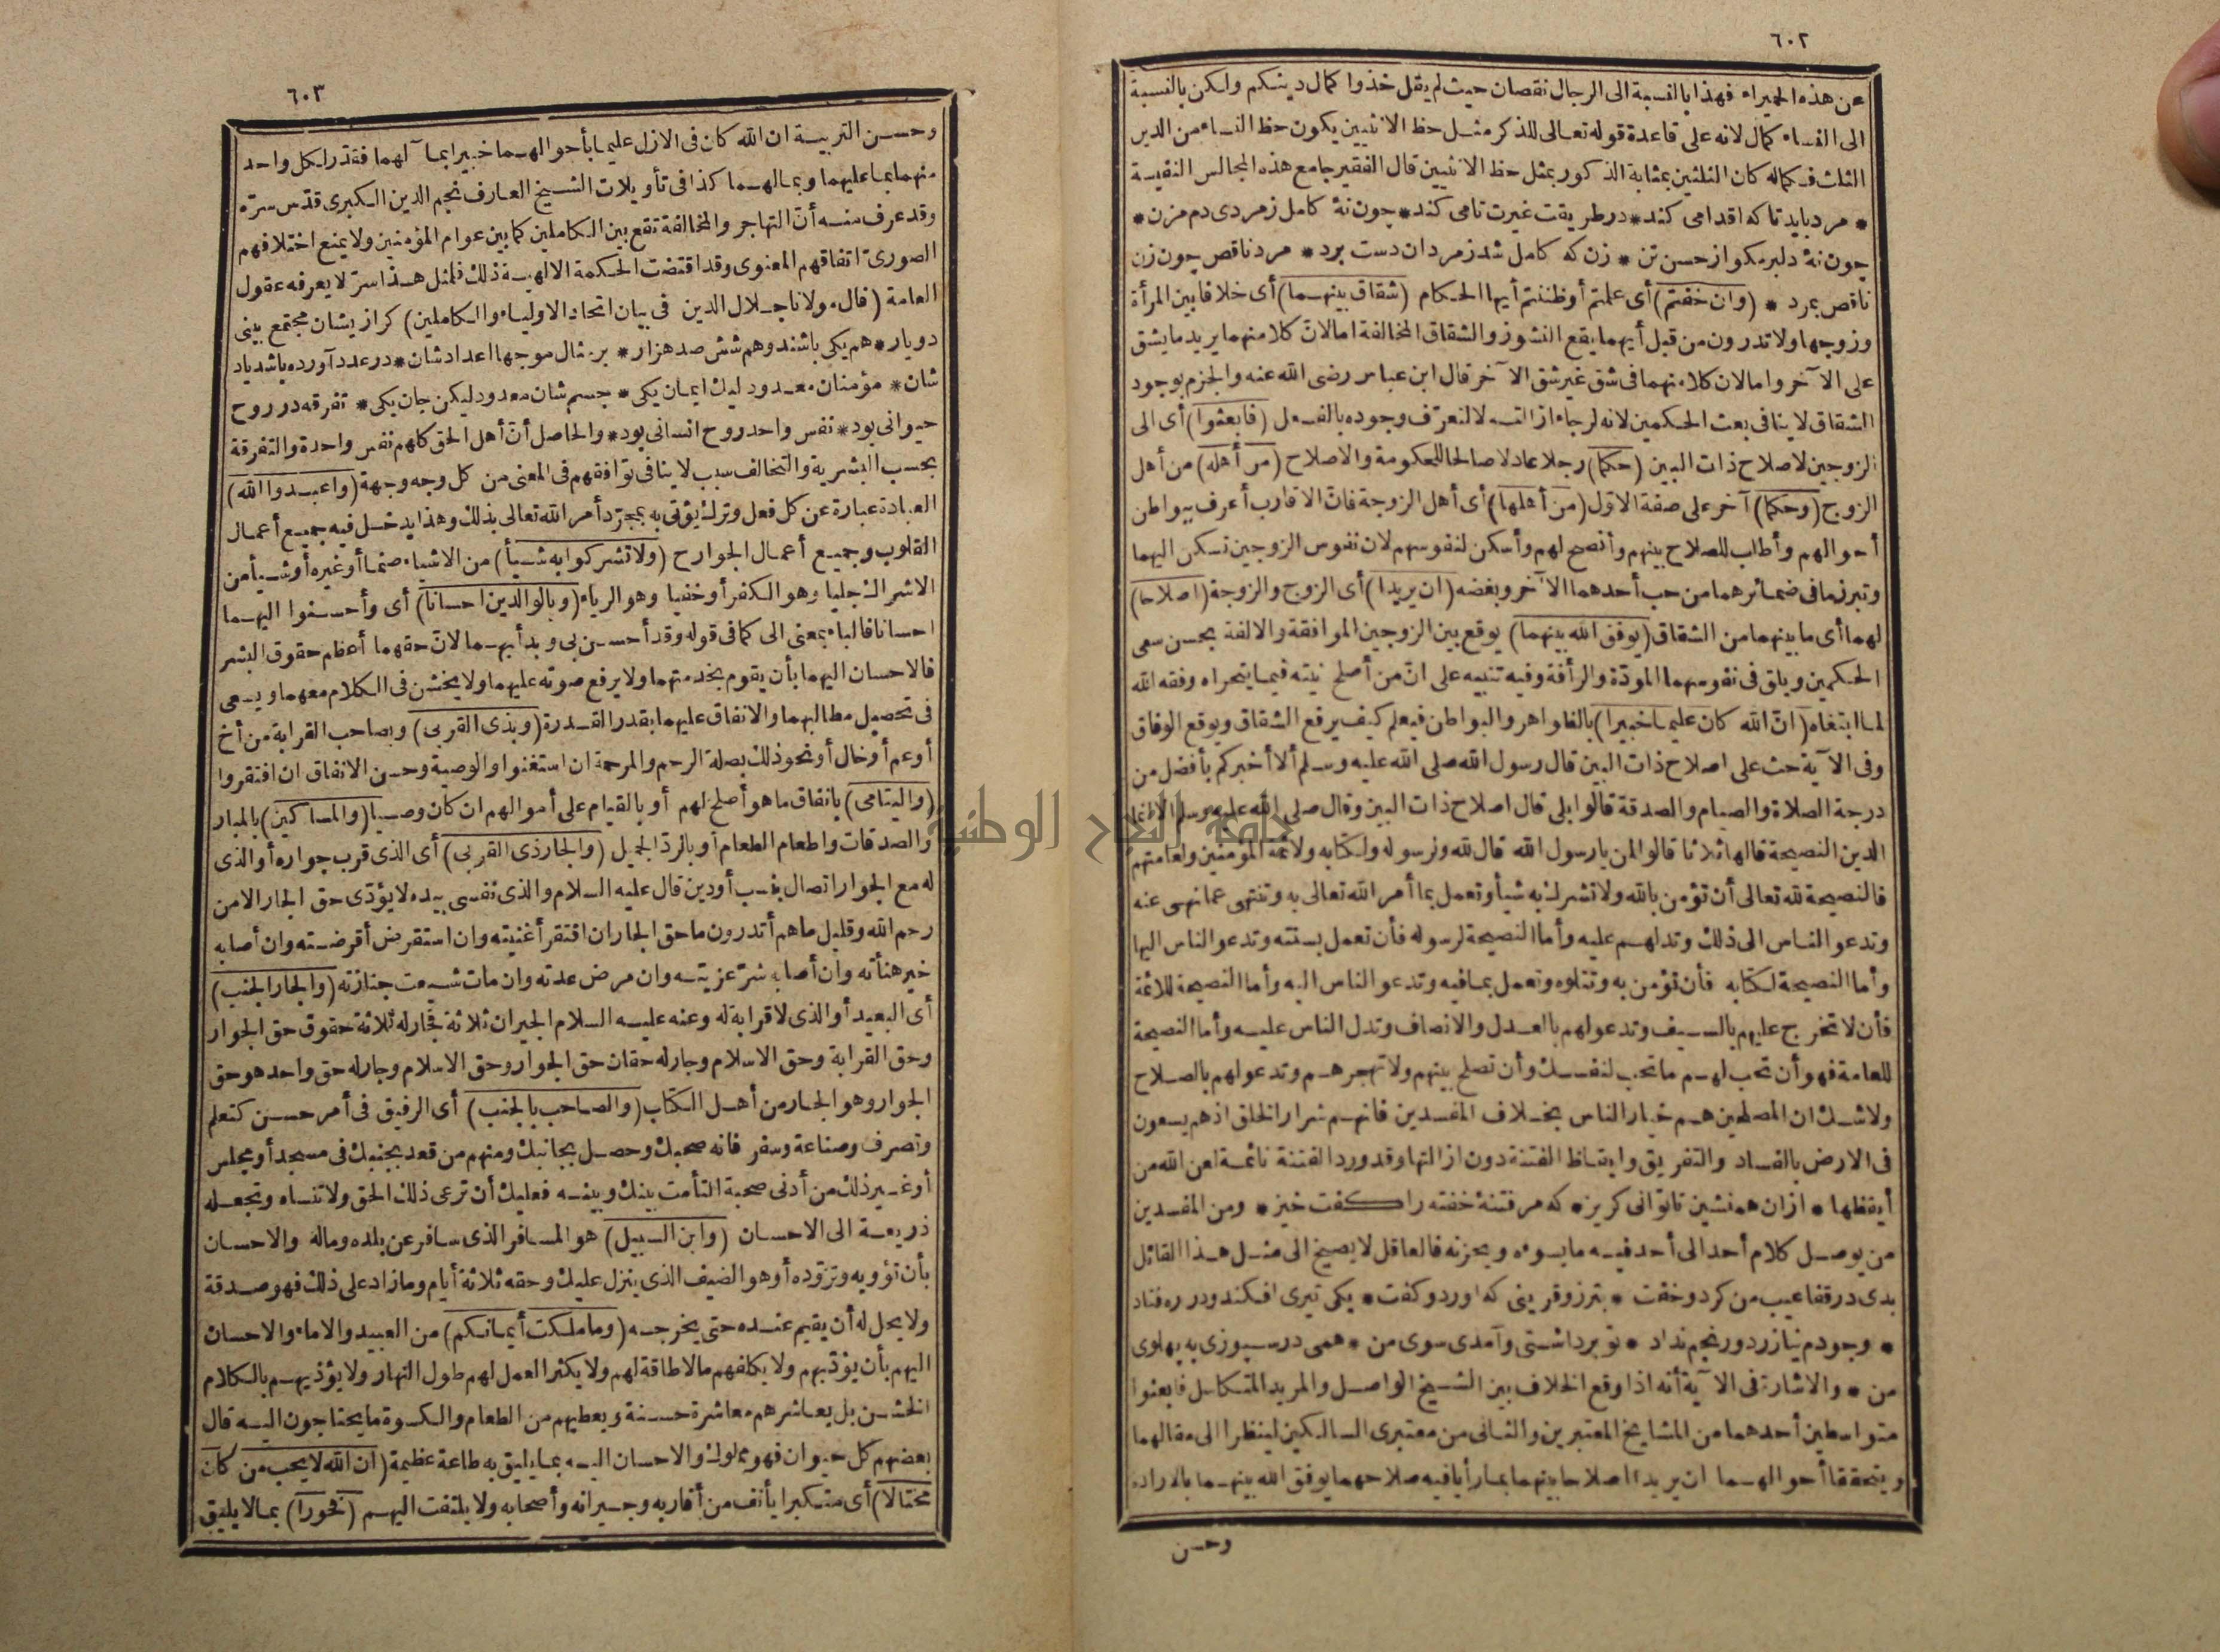 ٦٠٢
عن هذه الحميراء فهذا بالنسبة الى الرجال نقصان حيث لم يقل خذوا كمال دينكم ولكن بالنسبة
الى النساء كمال لانه على قاعدة قوله تعالى للذكر مثل حظ الانثيين يكون حظ النساء من الدين
الثلث فكماله كان الثلثين بمثابة الذكور بمثل حظ الانثيين قال الفقير جامع هذه المجالس النفيسة
* مرد بايد تا كه اقدامى كند * در طريقت غيرت تامى كند * چون نۀ كامل زمردى دم مزن *
چون نۀ دلبر مكو از حسن تن * زن كه كامل شد زمردان دست برد * مرد ناقص چون زن
ناقص بمرد * (وان خفتم) أى علمتم أو ظننتم أيها الحكام (شقاق بينهما) أى خلافا بين المرأة
وزوجها ولا تدرون من قبل أيهما يقع النشوز والشقاق المخالفة امالان كلا منهما يريد ما يشق
على الآخر وامالان كلا منهما فى شق غير شق الآخر قال ابن عباس رضى الله عنه والجزم بوجود
الشقاق لا ينافى بعث الحكمين لانه لرجاء ازالته لا لتعرّف وجوده بالفعل (فابعثوا) أى الى
الزوجين لاصلاح ذات البين (حكما) رجلا عادلا صالحا للحكومة والاصلاح (من أهله) من أهل
الزوج (وحكما) آخر على صفة الاوّل (من أهلها) أى أهل الزوجة فانّ الاقارب أعرف ببواطن
أحوالهم وأطلب للصلاح بينهم وأنصح لهم وأسكن لنفوسهم لان نفوس الزوجين تسكن اليهما
وتبرز ما فى ضمائرهما من حب أحدهما الآخر وبغضه (ان يريدا) أى الزوج والزوجة (اصلاحا)
لهما أى ما بينهما من الشقاق (يوفق الله بينهما) يوقع بين الزوجين الموافقة والالفة بحسن سعى
الحكمين ويلق فى نفوسهما المودّة والرأفة وفيه تنبيه على انّ من أصلح نيته فيما يتحراه وفقه الله
لما ابتغاه (انّ الله كان عليما خبيرا) بالظواهر والبواطن فيعلم كيف يرفع الشقاق ويوقع الوفاق
وفى الآية حث على اصلاح ذات البين قال رسول الله صلى الله عليه وسلم ألا أخبركم بأفضل من
درجة الصلاة والصيام والصدقة قالوا بلى قال اصلاح ذات البين وقال صلى الله عليه وسلم ألا انما
الدين النصيحة قالها ثلاثا قالوا لمن يا رسول الله قال لله ولرسوله ولكتابه ولائمة المؤمنين ولعامتهم
فالنصيحة لله تعالى أن تؤمن بالله ولا تشرك به شيأ وتعمل بما أمر الله تعالى به وتنتهى عما نهى عنه
وتدعو الناس الى ذلك وتدلهم عليه وأما النصيحة لرسوله فأن تعمل بسنته وتدعو الناس اليها
وأما النصيحة لكتابه فأن تؤمن به وتتلوه وتعمل بما فيه وتدعو الناس اليه وأما النصيحة للائمة
فأن لا تخرج عليهم بالسيف وتدعولهم بالعدل والانصاف وتدل الناس عليه وأما النصيحة
للعامة فهو أن تحب لهم ما تحب لنفسك وأن تصلح بينهم ولا تهجرهم وتدعولهم بالصلاح
ولا شك ان المصلحين هم خيار الناس بخلاف المفسدين فانهم شرار الخلق اذ هم يسعون
فى الارض بالفساد والتفريق وايقاظ الفتنة دون ازالتها وقد ورد الفتنة نائمة لعن الله من
أيقظها * ازان همنشين تا توانى كريز * كه مر فتنۀ خفته را كفت خيز * ومن المفسدين
من يوصل كلام أحد الى أحد فيه ما يسوءه ويحزنه فالعاقل لا يصيخ الى مثل هذا القائل
بدى در قفا عيب من كرد وخفت * بتر زو قرينى كه اورد وكفت * يكى تيرى افكند ودر ره فتاد
* وجودم نيازرد ورنجم نداد * تو برداشتى وآمدى سوى من * همى درسپوزى به پهلوى
من * والاشارة فى الآية أنه اذا وقع الخلاف بين الشيخ الواصل والمريد المتكاسل فابعثوا
متواسطين أحدهما من المشايخ المعتبرين والثانى من معتبرى السالكين لينظرا الى مقالهما
ويتحققا أحوالهما ان يريدا اصلاحا بينهما بما رأيا فيه صلاحهما يوفق الله بينهما بالارادة
وحسن
٦٠٣
وحسن التربية ان الله كان فى الازل عليما بأحوالهما خبيرا بما آلهما فقدّر لكل واحد
منهما بما عليهما وبما لهما كذا فى تأويلات الشيخ العارف نجم الدين الكبرى قدّس سرّه
وقد عرف منه أنّ التهاجر والمخالفة تقع بين الكاملين كما بين عوام المؤمنين ولا يمنع اختلافهم
الصورىّ اتفاقهم المعنوى وقد اقتضت الحكمة الالهية ذلك فلمثل هذا سرّ لا يعرفه عقول
العامة (قال مولانا جلال الدين فى بيان اتحاد الاولياء والكاملين) كر ازيشان مجتمع بينى
دو يار * هم يكى باشند وهم شش صد هزار * بر مثال موجها اعداد شان * در عدد آورده باشد ياد
شان * مؤمنان معدود ليك ايمان يكى * جسم شان معدود ليكن جان يكى * تفرقه در روح
حيوانى بود * نفس واحد روح انسانى بود * والحاصل أنّ أهل الحق كلهم نفس واحدة والتفرقة
بحسب البشرية والتخالف سبب لا ينافى توافقهم فى المعنى من كل وجه وجهة (واعبدوا الله)
العبادة عبارة عن كل فعل وترك يؤتى به بمجرّد أمر الله تعالى بذلك وهذا يدخل فيه جميع أعمال
القلوب وجميع أعمال الجوارح (ولا تشركوا به شيأ) من الاشياء صنما أو غيره أو شيأ من
الاشراك جليا وهو الكفر أو خفيا وهو الرياء (وبالوالدين احسانا) أى وأحسنوا اليهما
احسانا فالباء بمعنى الى كما فى قوله وقد أحسن بى وبدأ بهما لانّ حقهما أعظم حقوق البشر
فالاحسان اليهما بأن يقوم بخدمتهما ولا يرفع صوته عليهما ولا يخشن فى الكلام معهما ويسعى
فى تحصيل مطالبهما والانفاق عليهما بقدر القدرة (وبذى القربى) وبصاحب القرابة من أخ
أو عم أو خال أو نحو ذلك بصلة الرحم والمرحمة ان استغنوا والوصية وحسن الانفاق ان افتقروا
(واليتامى) بانفاق ما هو أصلح لهم أو بالقيام على أموالهم ان كان وصيا (والمساكين) بالمبار
والصدقات واطعام الطعام أو بالردّ الجميل (والجار ذى القربى) أى الذى قرب جواره أو الذى
له مع الجوار اتصال بنسب أو دين قال عليه السلام والذى نفسى بيده لا يؤدّى حق الجار الا من
رحم الله وقليل ما هم أتدرون ما حق الجار ان افتقر أغنيته وان استقرض أقرضته وان أصابه
خير هنأته وان أصابه شرّ عزيته وان مرض عدته وان مات شيعت جنازته (والجار الجنب)
أى البعيد أو الذى لا قرابة له وعنه عليه السلام الجيران ثلاثة فجار له ثلاثة حقوق حق الجوار
وحق القرابة وحق الاسلام وجار له حقان حق الجوار وحق الاسلام وجار له حق واحد هو حق
الجوار وهو الجار من أهل الكتاب (والصاحب بالجنب) أى الرفيق فى أمر حسن كتعلم
وتصرف وصناعة وسفر فانه صحبك وحصل بجانبك ومنهم من قعد بجنبك فى مسجد أو مجلس
أو غير ذلك من أدنى صحبة التأمت بينك وبينه فعليك أن ترعى ذلك الحق ولا تنساه وتجعله
ذريعة الى الاحسان (وابن السبيل) هو المسافر الذى سافر عن بلده وماله والاحسان
بأن تؤويه وتزوّده أو هو الضيف الذى ينزل عليك وحقه ثلاثة أيام وما زاد على ذلك فهو صدقة
ولا يحل له أن يقيم عنده حتى يخرجه (وما ملكت أيمانكم) من العبيد والاماء والاحسان
اليهم بأن يؤدّبهم ولا يكلفهم مالا طاقة لهم ولا يكثر العمل لهم طول النهار ولا يؤذيهم بالكلام
الخشن بل يعاشرهم معاشرة حسنة ويعطيهم من الطعام والكسوة ما يحتاجون اليه قال
بعضهم كل حيوان فهو مملوك والاحسان اليه بما يليق به طاعة عظيمة (ان الله لا يحب من كان
مختالا) أى متكبرا يأنف من أقاربه وجيرانه وأصحابه ولا يلتفت اليهم (فخورا) بما لا يليق
جامعة النجاح الوطنية